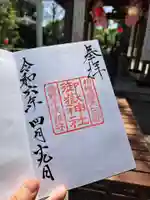 奉拝
御嶽神社
令和六年四月十九日